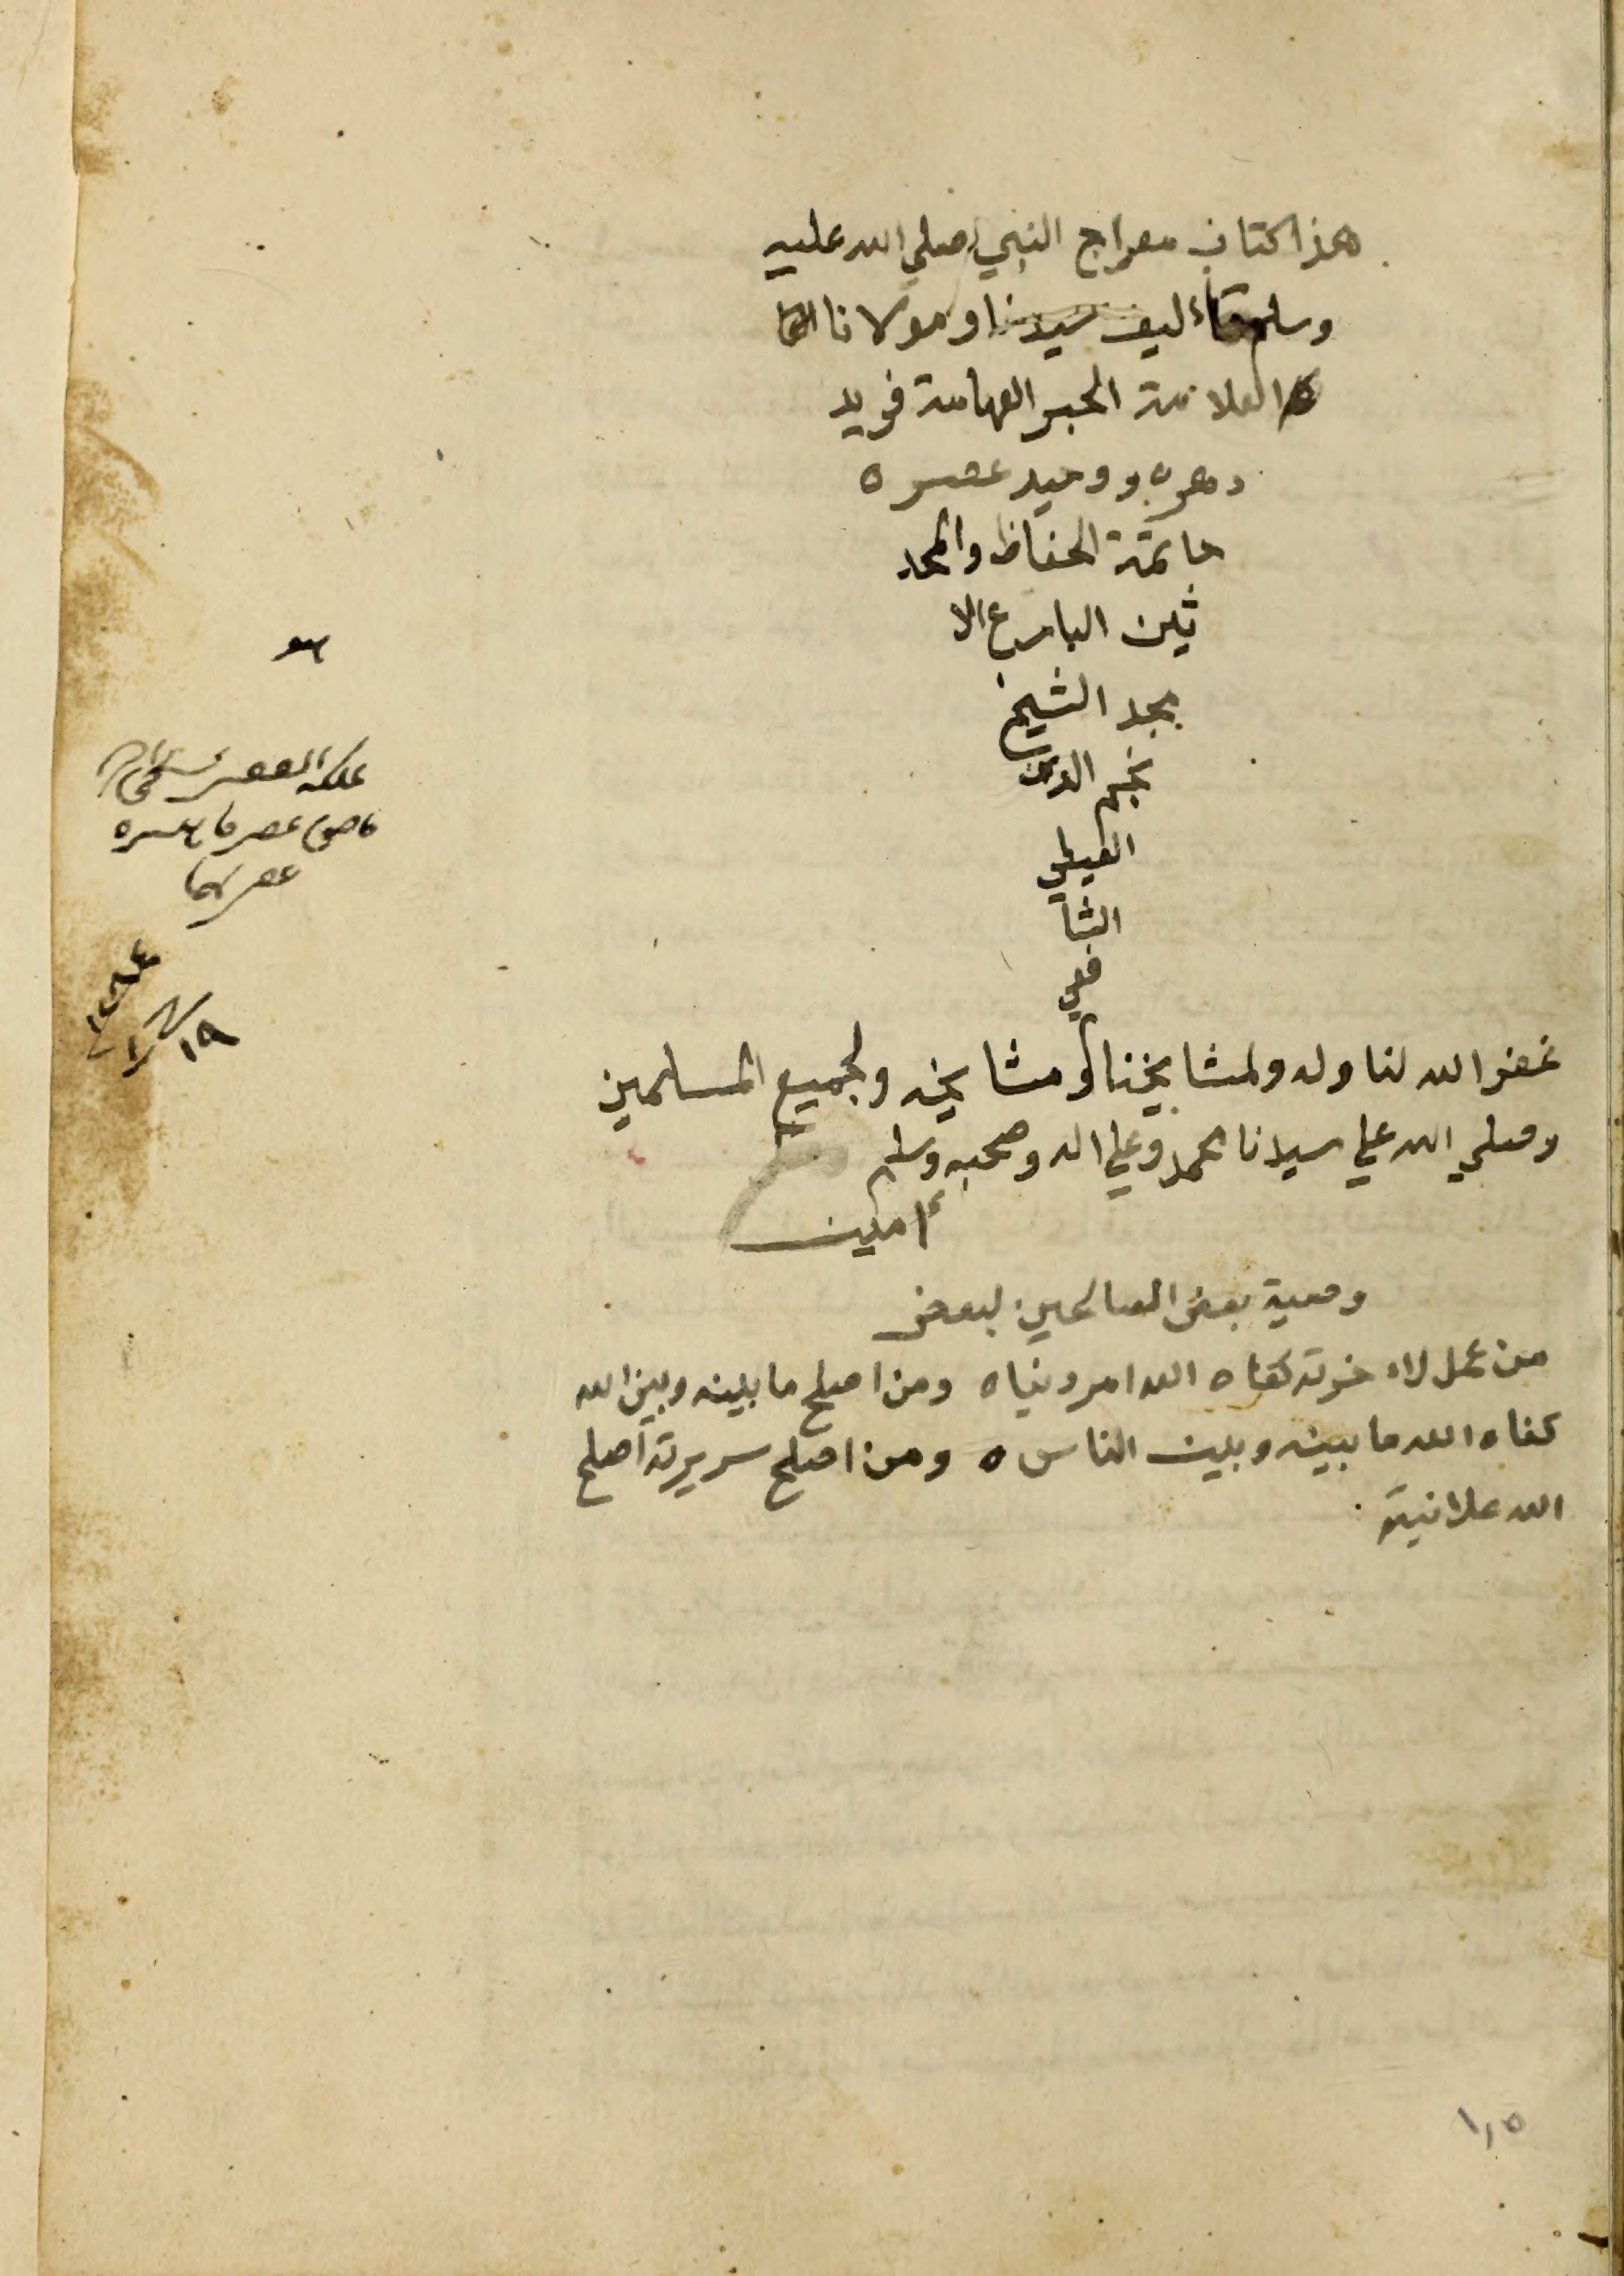 هذا كتاب معراج النبي صلي الله عليه
وسلم تاءليف سيدنا ومولانا
العلامة الحبر الفهامة فريد
دهره ووحيد عصره
خاتمة الحفاظ والمحد
ثين البارع الا
مجد الشيخ
نجم الدين
الغيطي
الشا
فعي
غفر الله لنا وله ولمشايخنا ومشايخه ولجميع المسلمين
وصلي الله علي سيدنا محمد وعلي اله وصحبه وسلم
امين
وصية بعض الصالحين لبعض
من عمل لاءخرته كفاه الله امر دنياه ومن اصلح ما بينه وبين الله
كفاه الله ما بينه وبين الناس ه ومن اصلح سريرته اصلح
الله علانيته
١٩